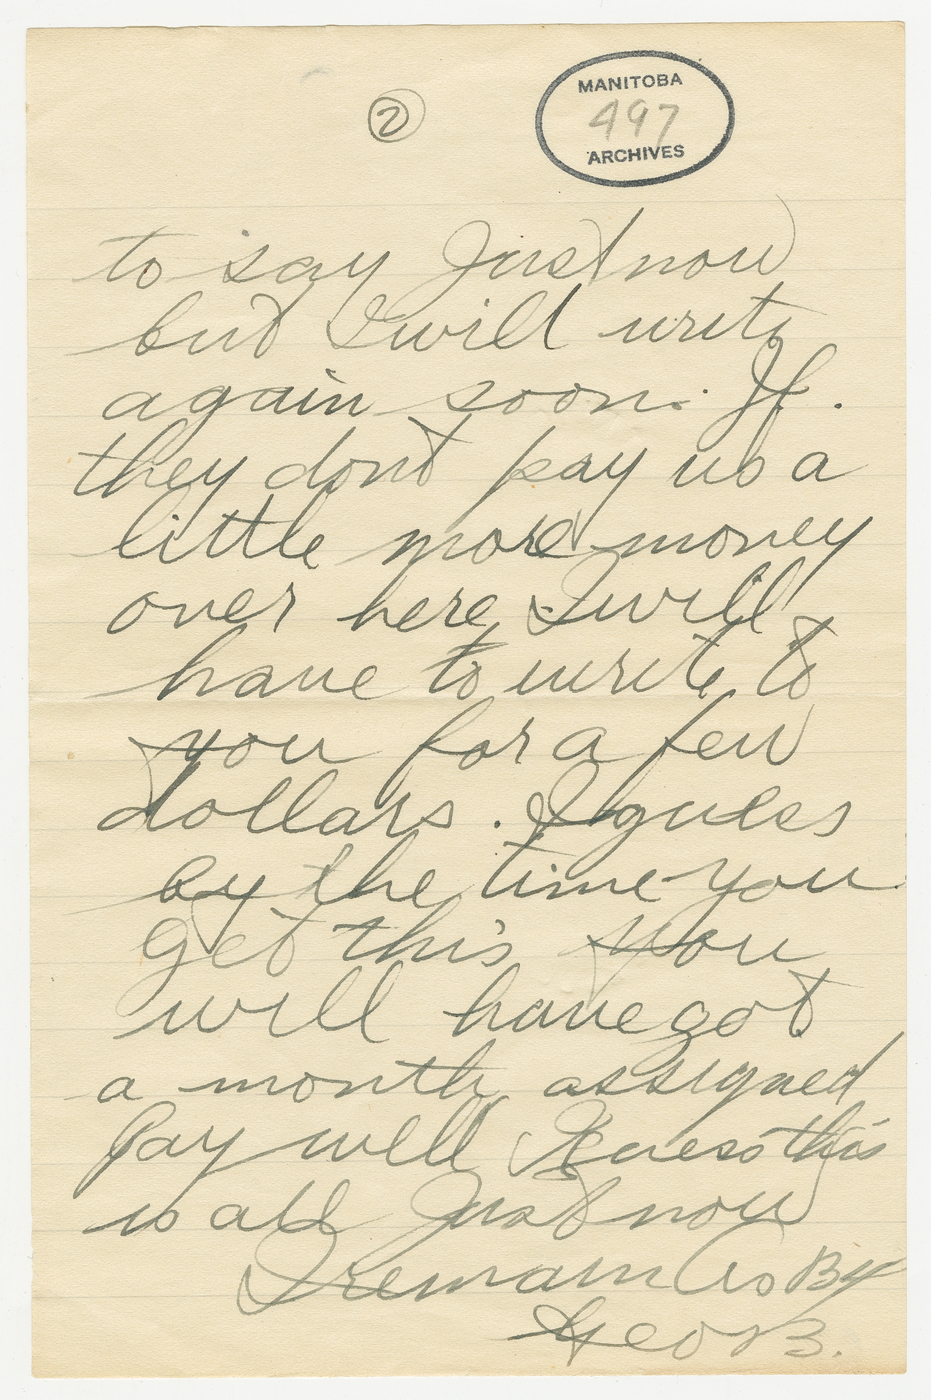 ②
MANITOBA
497
ARCHIVES
to say Just now
but I will write
again soon. If.
they dont pay us a
little more money
over here I will
have to write to
you for a few
dollars. I guess
by the time you
get this you
will have got
a month assigned
Pay well Guess this
is all Just now
I remain As By
Geo B.